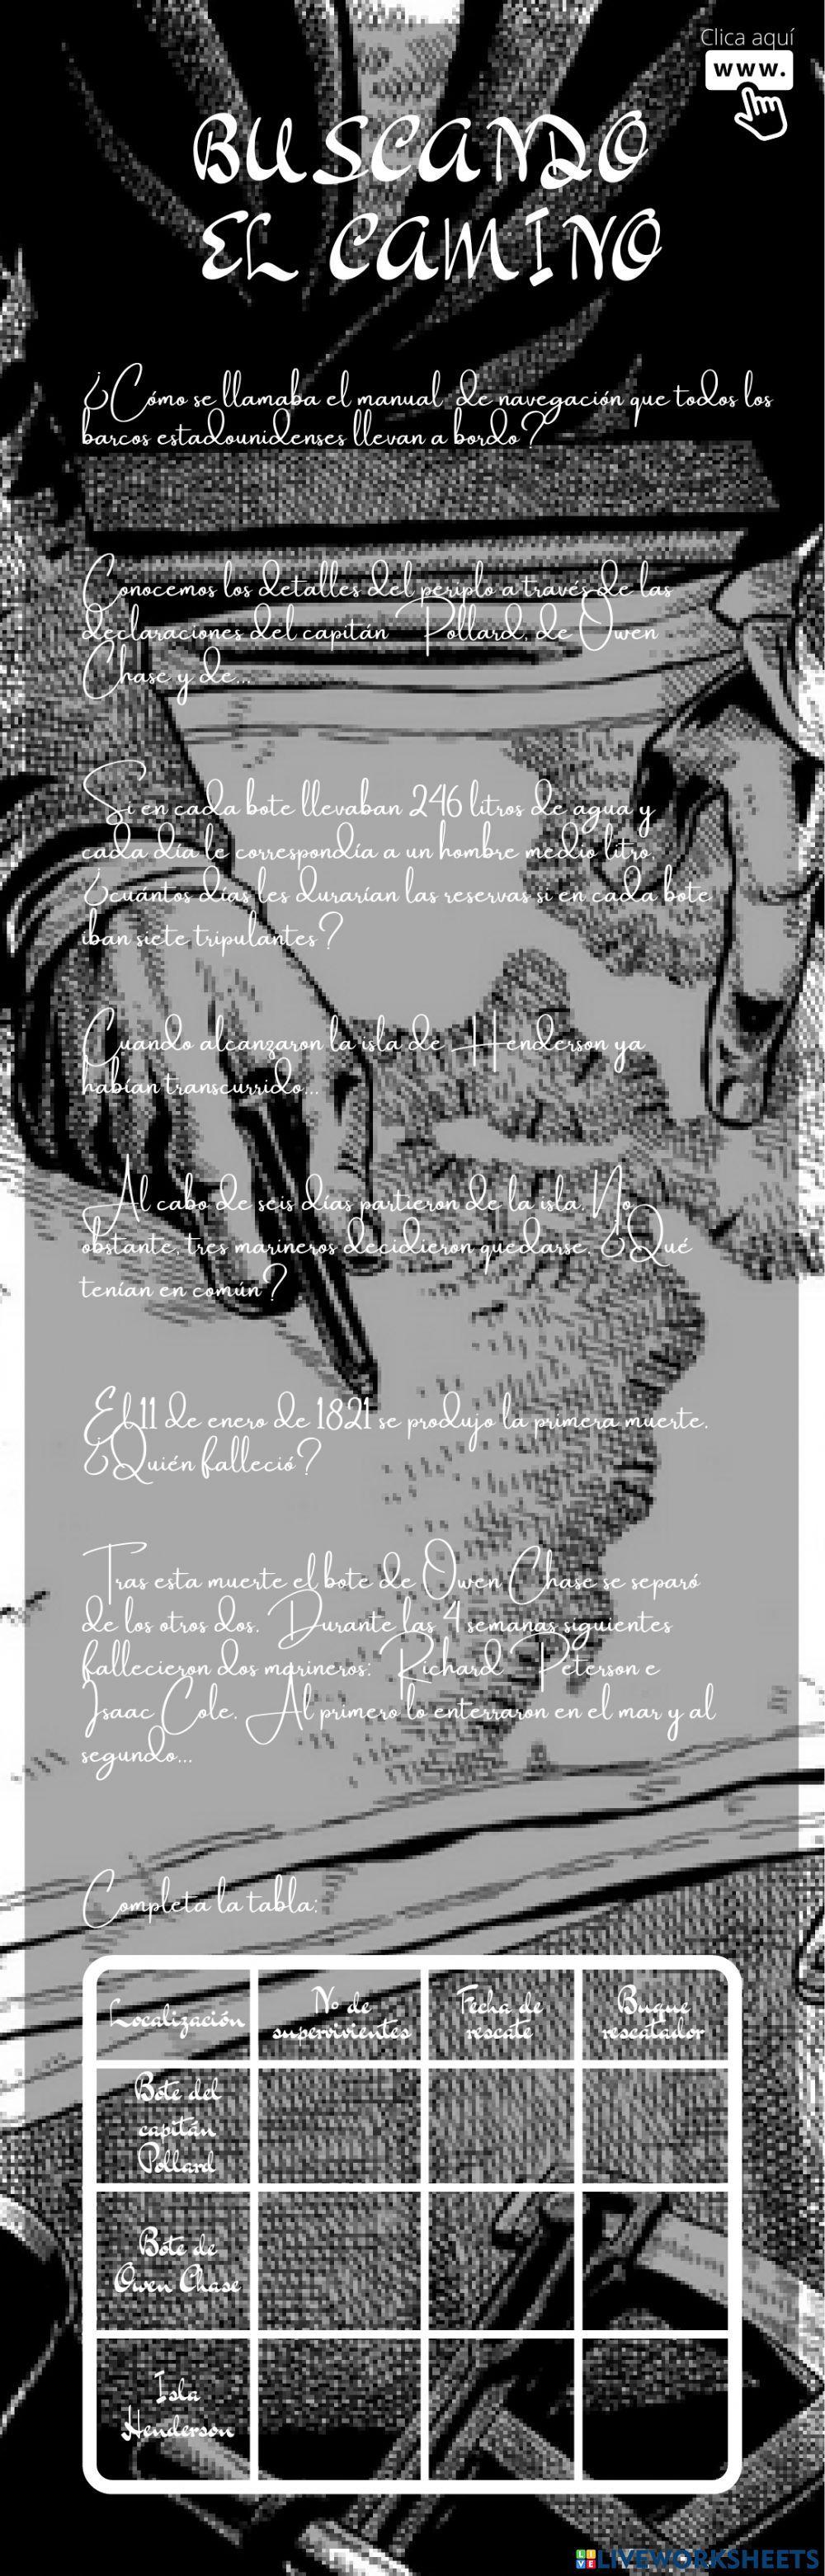 Clica aquí
www.
BUSCANDO
EL CAMINO
¿Cómo se llamaba el manual de navegación que todos los
barcos estadounidenses llevan a bordo?
Conocemos los detalles del periplo a través de las
declaraciones del capitán Pollard, de Owen
Chase y de...
Si en cada bote llevaban 246 litros de agua y
cada día le correspondía a un hombre medio litro,
¿cuántos días les durarían las reservas si en cada bote
iban siete tripulantes?
Cuando alcanzaron la isla de Henderson ya
habían transcurrido...
Al cabo de seis días partieron de la isla. No
obstante, tres marineros decidieron quedarse. ¿Qué
tenían en común?
El 11 de enero de 1821 se produjo la primera muerte.
¿Quién falleció?
Tras esta muerte el bote de Owen Chase se separó
de los otros dos. Durante las 4 semanas siguientes
fallecieron dos marineros: Richard Peterson e
Isaac Cole. Al primero lo enterraron en el mar y al
segundo...
Completa la tabla:
Localización
Nº de
supervivientes
Fecha de
rescate
Buque
rescatador
Bote del
capitán
Pollard
Bote de
Owen Chase
Isla
Henderson
LIVEWORKSHEETS